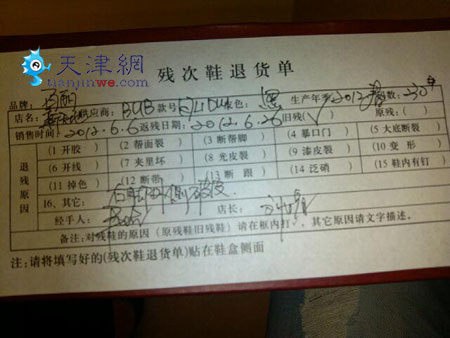 天津網
tianjinwe.com
残次鞋退货单
品牌: 百丽 供应商: BUB 款号: 色: 黑 生产年季 2012 码数: 230#
店名: 旧残(√) 原残:
销售时间: 2012.6.6 返残日期: 2012.6.26
退残原因
(1 开胶 ) (2 帮面裂 ) (3 断帮脚 ) (4 暴口门 ) (5 大底断裂 )
(6 开线 ) (7 夹里坏 ) (8 光皮裂 ) (9 漆皮裂 ) (10 变 形 )
(11 掉色 ) (12 断带 ) (13 断 跟 ) (14 泛硝 ) (15 鞋内有钉 )
16、其它: 右脚 侧破皮
经手人: 店长:
备注: 对残鞋的原因(原残鞋旧残鞋)请在框内打 其它原因请文字描述。
注:请将填写好的(残次鞋退货单)贴在鞋盒侧面